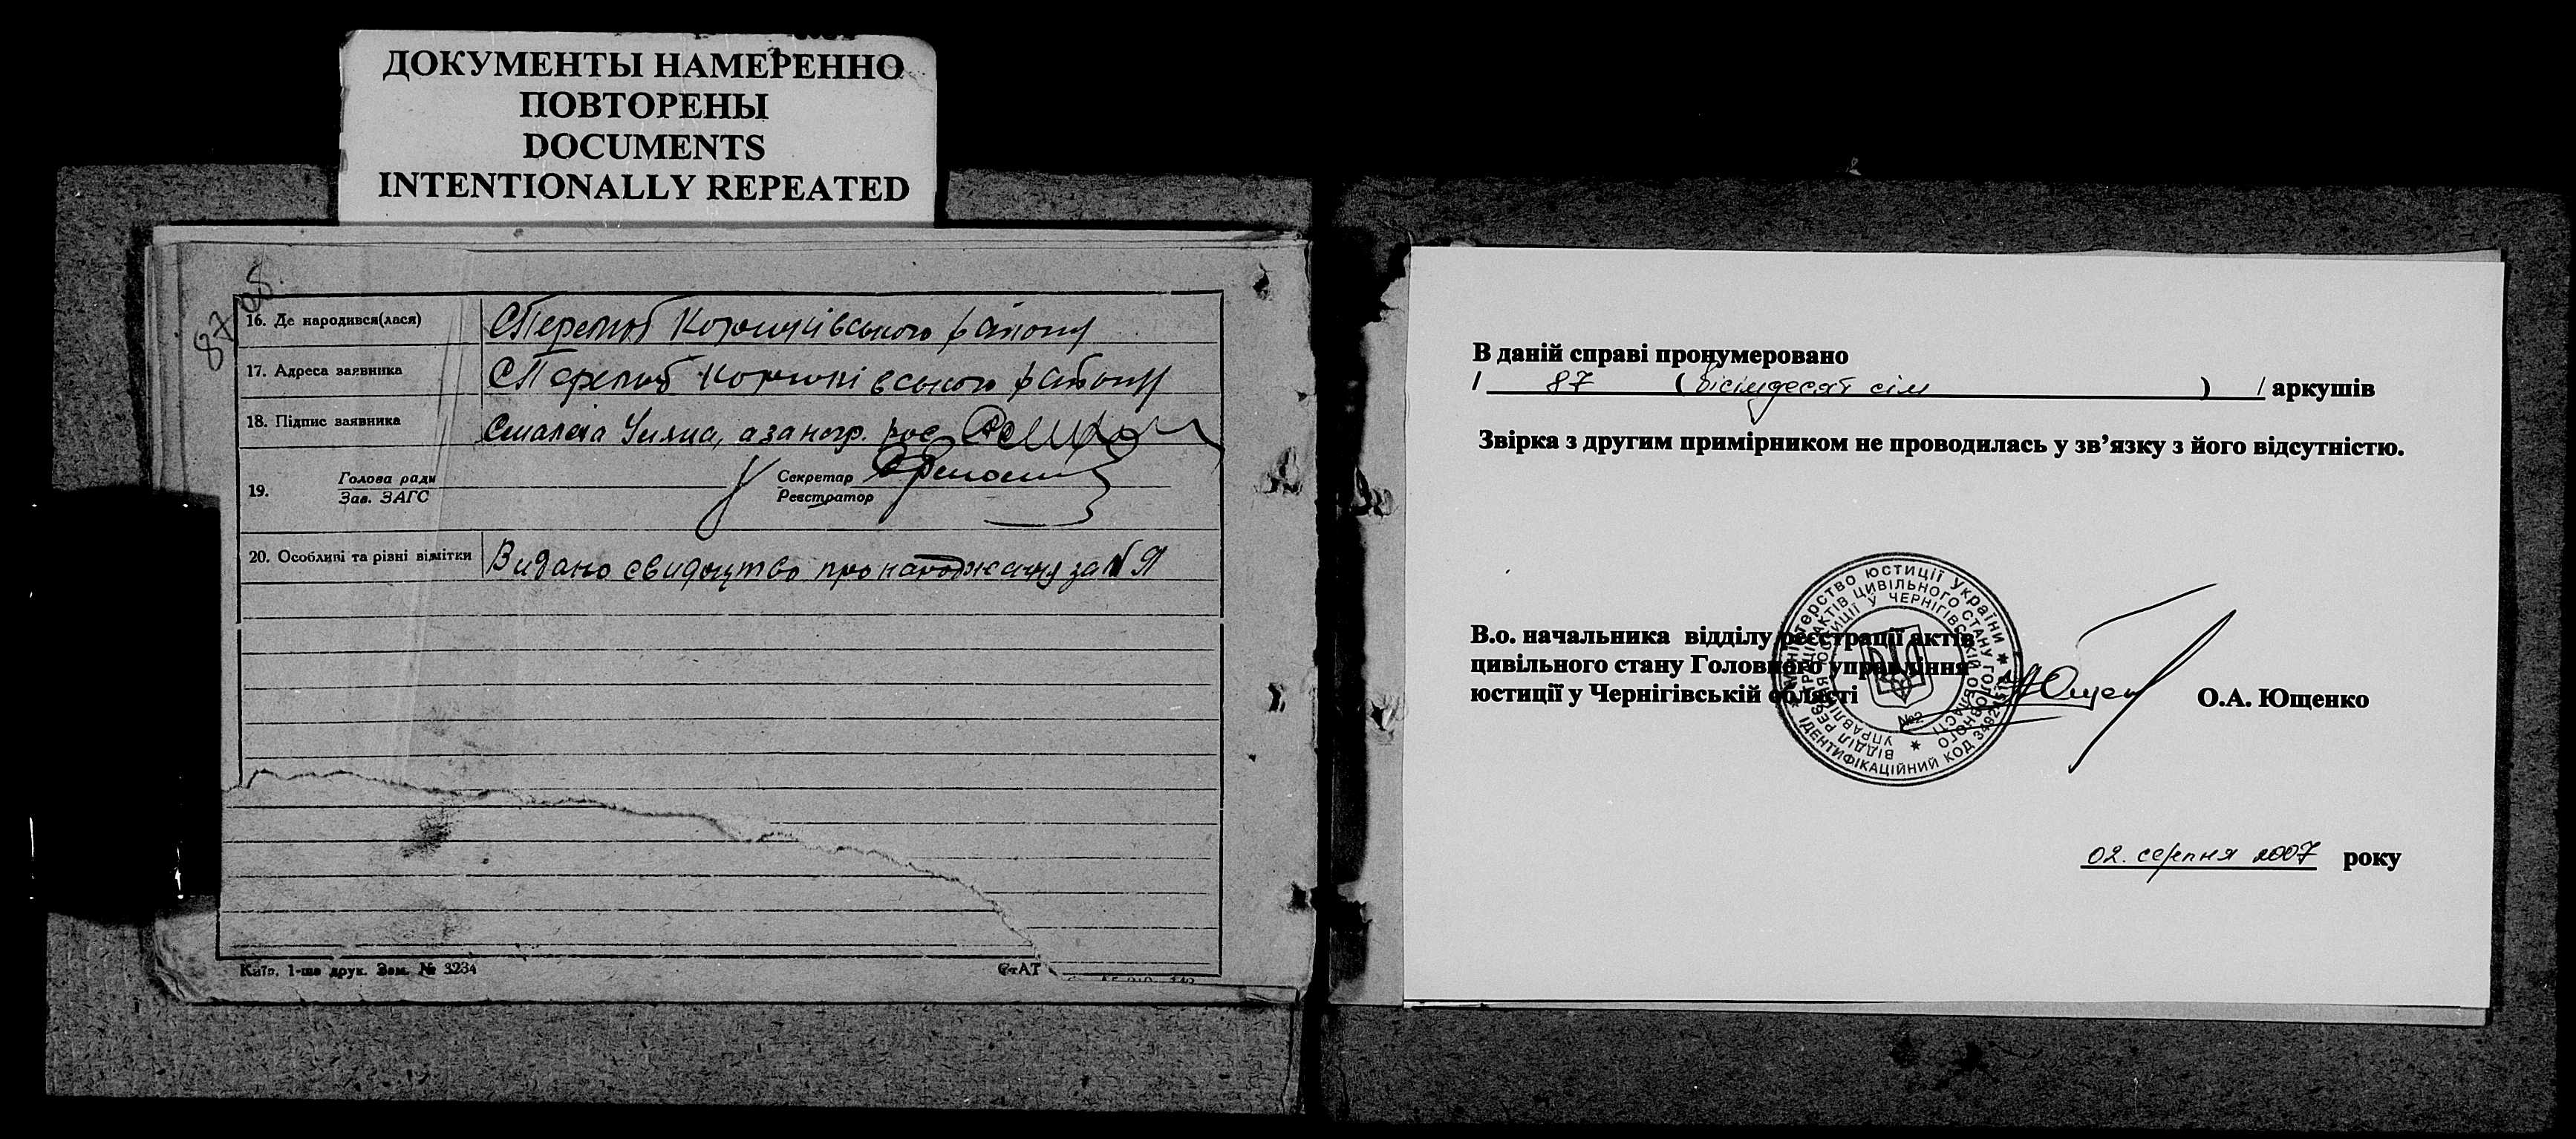 ДОКУМЕНТЫ НАМЕРЕННО
ПОВТОРЕНЫ
DOCUMENTS
INTENTIONALLY REPEATED
87
16. Де народився(лася) С Перелюб Корюківського району
17. Адреса заявника С Перелюб Корюківського району
18. Підпис заявника Уляна, а за негр. рос.
19. Голова ради
Зав. ЗАГС
Секретар
Реєстратор
20. Особливі та різні відмітки Видано свидоцтво про народження за №
Київ. 1-ша друк. Зам. № 3234
В даній справі пронумеровано
/ 87 ( вісімдесят сім ) / аркушів
Звірка з другим примірником не проводилась у зв’язку з його відсутністю.
В.о. начальника відділу реєстрації актів
цивільного стану Головного управління
юстиції у Чернігівській області О.А. Ющенко
Міністерство юстиції України
ІДЕНТИФІКАЦІЙНИЙ КОД
ВІДДІЛ РЕЄСТРАЦІЇ АКТІВ ЦИВІЛЬНОГО СТАНУ ГОЛОВНОГО
УПРАВЛІННЯ ЮСТИЦІЇ У ЧЕРНІГІВСЬКІЙ ОБЛАСТІ
№2
02. серпня 2007 року